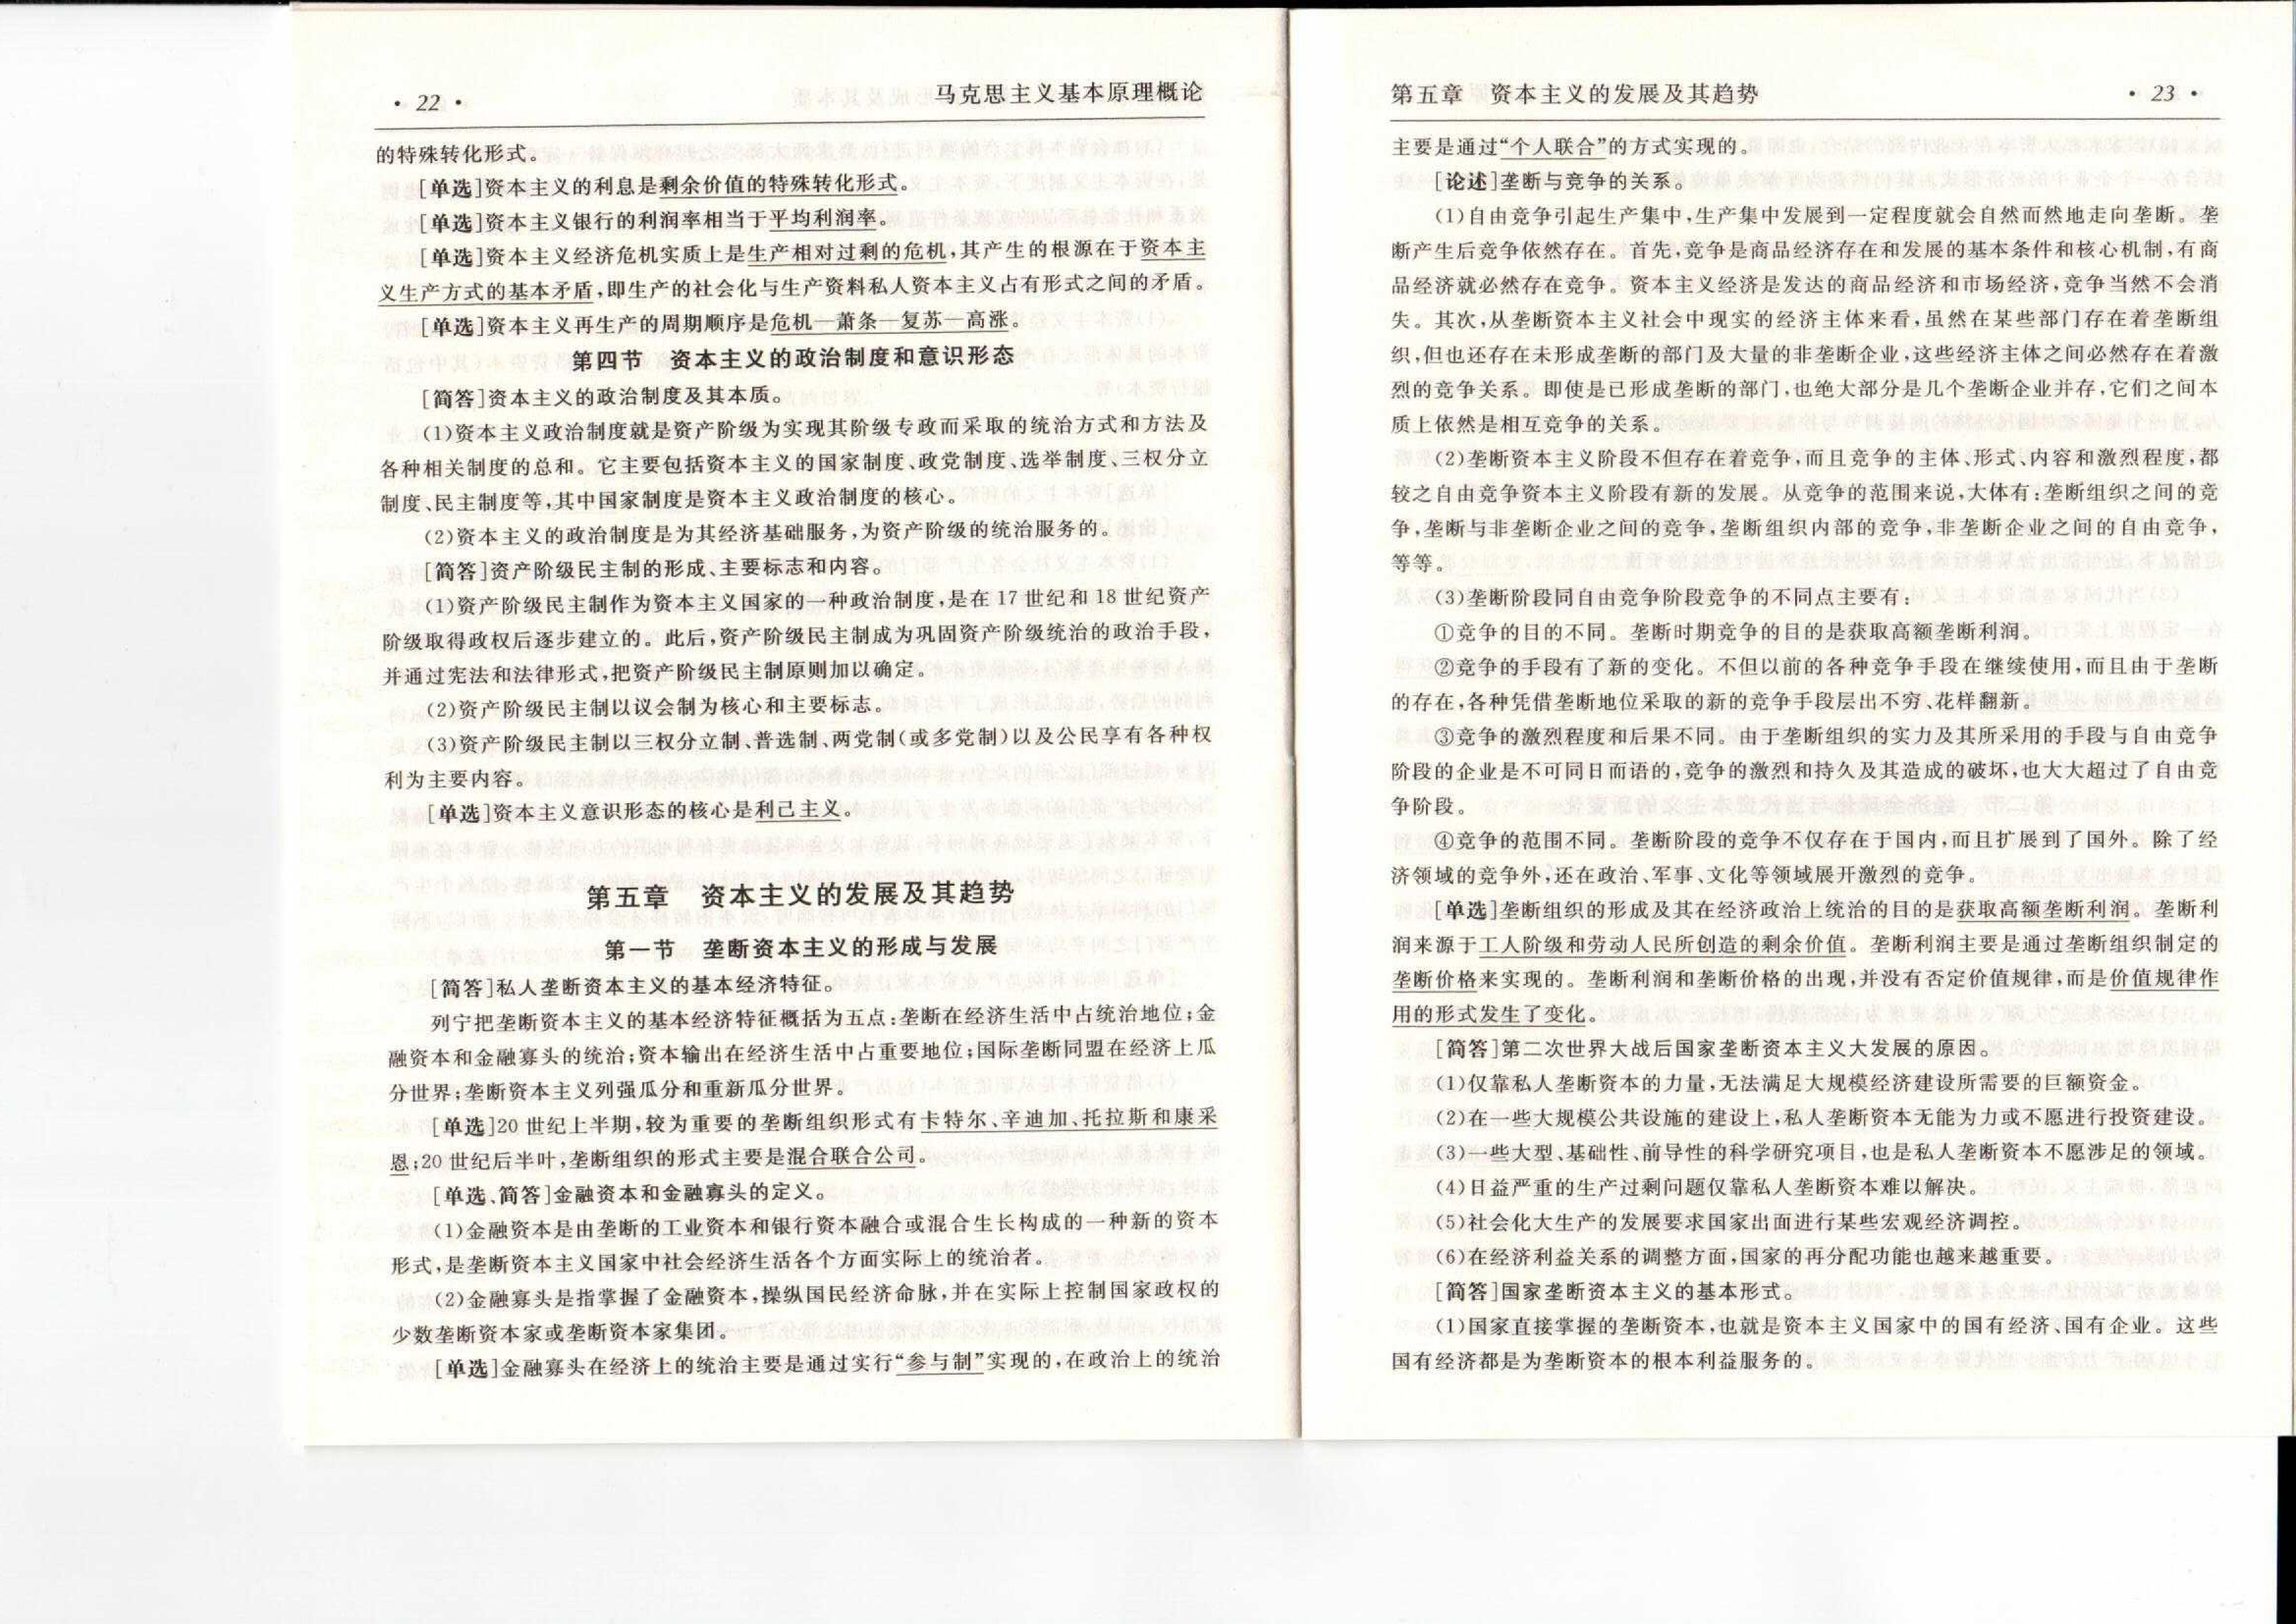 · 22 ·
马克思主义基本原理概论
的特殊转化形式。
[单选]资本主义的利息是剩余价值的特殊转化形式。
[单选]资本主义银行的利润率相当于平均利润率。
[单选]资本主义经济危机实质上是生产相对过剩的危机,其产生的根源在于资本主
义生产方式的基本矛盾,即生产的社会化与生产资料私人资本主义占有形式之间的矛盾。
[单选]资本主义再生产的周期顺序是危机—萧条—复苏—高涨。
第四节 资本主义的政治制度和意识形态
[简答]资本主义的政治制度及其本质。
(1)资本主义政治制度就是资产阶级为实现其阶级专政而采取的统治方式和方法及
各种相关制度的总和。它主要包括资本主义的国家制度、政党制度、选举制度、三权分立
制度、民主制度等,其中国家制度是资本主义政治制度的核心。
(2)资本主义的政治制度是为其经济基础服务,为资产阶级的统治服务的。
[简答]资产阶级民主制的形成、主要标志和内容。
(1)资产阶级民主制作为资本主义国家的一种政治制度,是在 17 世纪和 18 世纪资产
阶级取得政权后逐步建立的。此后,资产阶级民主制成为巩固资产阶级统治的政治手段,
并通过宪法和法律形式,把资产阶级民主制原则加以确定。
(2)资产阶级民主制以议会制为核心和主要标志。
(3)资产阶级民主制以三权分立制、普选制、两党制(或多党制)以及公民享有各种权
利为主要内容。
[单选]资本主义意识形态的核心是利己主义。
第五章 资本主义的发展及其趋势
第一节 垄断资本主义的形成与发展
[简答]私人垄断资本主义的基本经济特征。
列宁把垄断资本主义的基本经济特征概括为五点:垄断在经济生活中占统治地位;金
融资本和金融寡头的统治;资本输出在经济生活中占重要地位;国际垄断同盟在经济上瓜
分世界;垄断资本主义列强瓜分和重新瓜分世界。
[单选]20 世纪上半期,较为重要的垄断组织形式有卡特尔、辛迪加、托拉斯和康采
恩;20 世纪后半叶,垄断组织的形式主要是混合联合公司。
[单选、简答]金融资本和金融寡头的定义。
(1)金融资本是由垄断的工业资本和银行资本融合或混合生长构成的一种新的资本
形式,是垄断资本主义国家中社会经济生活各个方面实际上的统治者。
(2)金融寡头是指掌握了金融资本,操纵国民经济命脉,并在实际上控制国家政权的
少数垄断资本家或垄断资本家集团。
[单选]金融寡头在经济上的统治主要是通过实行“参与制”实现的,在政治上的统治
第五章 资本主义的发展及其趋势
· 23 ·
主要是通过“个人联合”的方式实现的。
[论述]垄断与竞争的关系。
(1)自由竞争引起生产集中,生产集中发展到一定程度就会自然而然地走向垄断。垄
断产生后竞争依然存在。首先,竞争是商品经济存在和发展的基本条件和核心机制,有商
品经济就必然存在竞争。资本主义经济是发达的商品经济和市场经济,竞争当然不会消
失。其次,从垄断资本主义社会中现实的经济主体来看,虽然在某些部门存在着垄断组
织,但也还存在未形成垄断的部门及大量的非垄断企业,这些经济主体之间必然存在着激
烈的竞争关系。即使是已形成垄断的部门,也绝大部分是几个垄断企业并存,它们之间本
质上依然是相互竞争的关系。
(2)垄断资本主义阶段不但存在着竞争,而且竞争的主体、形式、内容和激烈程度,都
较之自由竞争资本主义阶段有新的发展。从竞争的范围来说,大体有:垄断组织之间的竞
争,垄断与非垄断企业之间的竞争,垄断组织内部的竞争,非垄断企业之间的自由竞争,
等等。
(3)垄断阶段同自由竞争阶段竞争的不同点主要有:
①竞争的目的不同。垄断时期竞争的目的是获取高额垄断利润。
②竞争的手段有了新的变化。不但以前的各种竞争手段在继续使用,而且由于垄断
的存在,各种凭借垄断地位采取的新的竞争手段层出不穷、花样翻新。
③竞争的激烈程度和后果不同。由于垄断组织的实力及其所采用的手段与自由竞争
阶段的企业是不可同日而语的,竞争的激烈和持久及其造成的破坏,也大大超过了自由竞
争阶段。
④竞争的范围不同。垄断阶段的竞争不仅存在于国内,而且扩展到了国外。除了经
济领域的竞争外,还在政治、军事、文化等领域展开激烈的竞争。
[单选]垄断组织的形成及其在经济政治上统治的目的是获取高额垄断利润。垄断利
润来源于工人阶级和劳动人民所创造的剩余价值。垄断利润主要是通过垄断组织制定的
垄断价格来实现的。垄断利润和垄断价格的出现,并没有否定价值规律,而是价值规律作
用的形式发生了变化。
[简答]第二次世界大战后国家垄断资本主义大发展的原因。
(1)仅靠私人垄断资本的力量,无法满足大规模经济建设所需要的巨额资金。
(2)在一些大规模公共设施的建设上,私人垄断资本无能为力或不愿进行投资建设。
(3)一些大型、基础性、前导性的科学研究项目,也是私人垄断资本不愿涉足的领域。
(4)日益严重的生产过剩问题仅靠私人垄断资本难以解决。
(5)社会化大生产的发展要求国家出面进行某些宏观经济调控。
(6)在经济利益关系的调整方面,国家的再分配功能也越来越重要。
[简答]国家垄断资本主义的基本形式。
(1)国家直接掌握的垄断资本,也就是资本主义国家中的国有经济、国有企业。这些
国有经济都是为垄断资本的根本利益服务的。